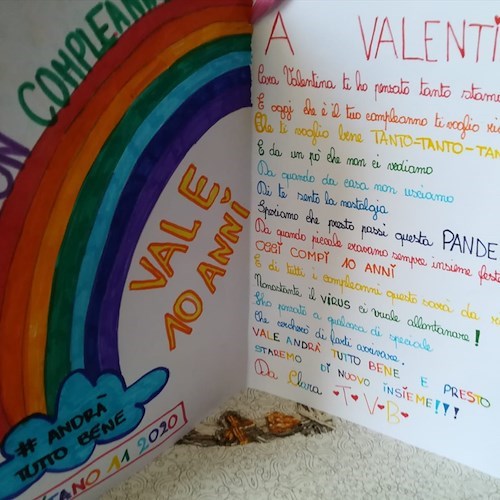 COMPLEANN
VALE
10 ANNI
# ANDRÀ
TUTTO BENE
11 2020
A VALENTI
Cara Valentina ti ho pensato tanto stama
E oggi che è il tuo compleanno ti voglio
Che ti voglio bene TANTO-TANTO-TAN
E da un pò che non ci vediamo
Da quando da casa non usciamo
Di te sento la nostalgia
Speriamo che presto passi questa PANDE
Da quando piccole eravamo sempre insieme feste
OGGI COMPI 10 ANNI
E di tutti i compleanni questo sarà da
Nonostante il VIRUS ci vuole allontanare!
Ho pensato a qualcosa di speciale
Che cercherò di farti arrivare.
VALE ANDRÀ TUTTO BENE E PRESTO
STAREMO DI NUOVO INSIEME!!!
Da Clara T V B